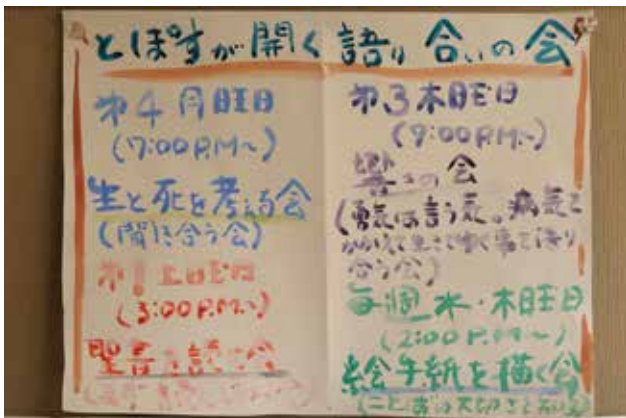 とぽすが開く語り合いの会
第4月曜日
(7:00P.M.~)
生と死を考える会
(聞き合う会)
第1土曜日
(3:00P.M.~)
聖書を読む会
第3木曜日
(7:00P.M.~)
響きの会
(勇気は言う気。病気を
かかえて生きて ゆく事を語り
合う会)
毎週 水・木曜日
(2:00P.M.~)
絵手紙を描く会